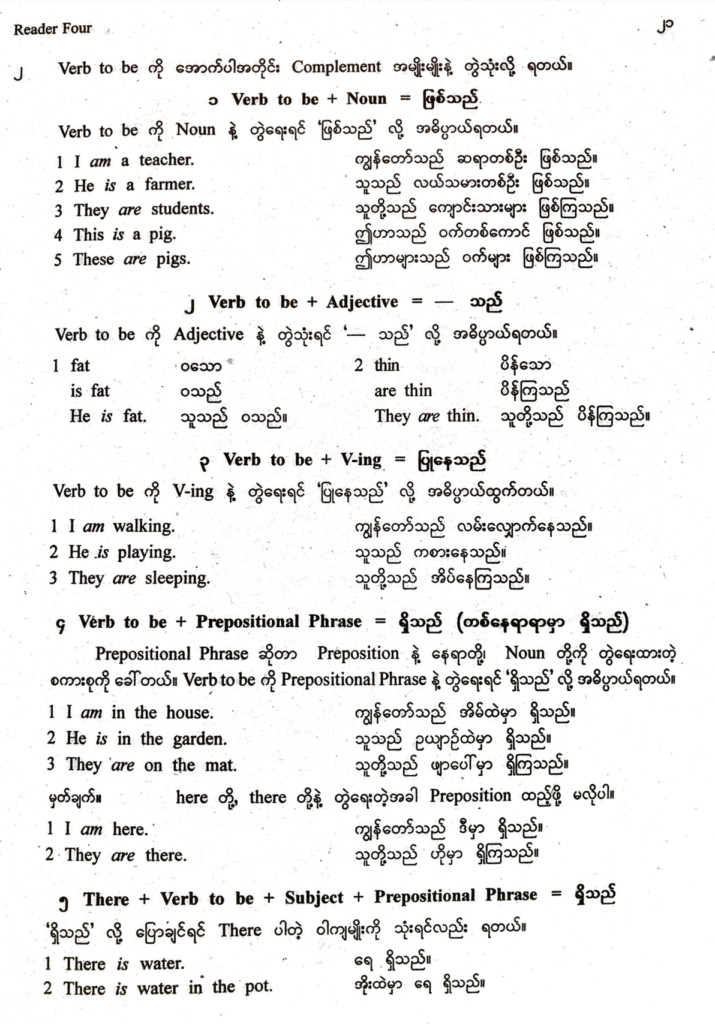 Reader Four ၂၁
၂ Verb to be ကို အောက်ပါအတိုင်း Complement အမျိုးမျိုးနဲ့ တွဲသုံးလို့ ရတယ်။
၁ Verb to be + Noun = ဖြစ်သည်
Verb to be ကို Noun နဲ့ တွဲရေးရင် ‘ဖြစ်သည်’ လို့ အဓိပ္ပာယ်ရတယ်။
1 I am a teacher. ကျွန်တော်သည် ဆရာတစ်ဦး ဖြစ်သည်။
2 He is a farmer. သူသည် လယ်သမားတစ်ဦး ဖြစ်သည်။
3 They are students. သူတို့သည် ကျောင်းသားများ ဖြစ်ကြသည်။
4 This is a pig. ဤဟာသည် ဝက်တစ်ကောင် ဖြစ်သည်။
5 These are pigs. ဤဟာများသည် ဝက်များ ဖြစ်ကြသည်။
၂ Verb to be + Adjective = — သည်
Verb to be ကို Adjective နဲ့ တွဲသုံးရင် ‘— သည်’ လို့ အဓိပ္ပာယ်ရတယ်။
1 fat ဝသော 2 thin ပိန်သော
is fat ဝသည် are thin ပိန်ကြသည်
He is fat. သူသည် ဝသည်။ They are thin. သူတို့သည် ပိန်ကြသည်။
၃ Verb to be + V-ing = ပြုနေသည်
Verb to be ကို V-ing နဲ့ တွဲရေးရင် ‘ပြုနေသည်’ လို့ အဓိပ္ပာယ်ထွက်တယ်။
1 I am walking. ကျွန်တော်သည် လမ်းလျှောက်နေသည်။
2 He is playing. သူသည် ကစားနေသည်။
3 They are sleeping. သူတို့သည် အိပ်နေကြသည်။
၄ Verb to be + Prepositional Phrase = ရှိသည် (တစ်နေရာရာမှာ ရှိသည်)
Prepositional Phrase ဆိုတာ Preposition နဲ့ နေရာတို့၊ Noun တို့ကို တွဲရေးထားတဲ့
စကားစုကို ခေါ်တယ်။ Verb to be ကို Prepositional Phrase နဲ့ တွဲရေးရင် ‘ရှိသည်’ လို့ အဓိပ္ပာယ်ရတယ်။
1 I am in the house. ကျွန်တော်သည် အိမ်ထဲမှာ ရှိသည်။
2 He is in the garden. သူသည် ဥယျာဉ်ထဲမှာ ရှိသည်။
3 They are on the mat. သူတို့သည် ဖျာပေါ်မှာ ရှိကြသည်။
မှတ်ချက်။ here တို့, there တို့နဲ့ တွဲရေးတဲ့အခါ Preposition ထည့်ဖို့ မလိုပါ။
1 I am here. ကျွန်တော်သည် ဒီမှာ ရှိသည်။
2 They are there. သူတို့သည် ဟိုမှာ ရှိကြသည်။
၅ There + Verb to be + Subject + Prepositional Phrase = ရှိသည်
‘ရှိသည်’ လို့ ပြောချင်ရင် There ပါတဲ့ ဝါကျမျိုးကို သုံးရင်လည်း ရတယ်။
1 There is water. ရေ ရှိသည်။
2 There is water in the pot. အိုးထဲမှာ ရေ ရှိသည်။